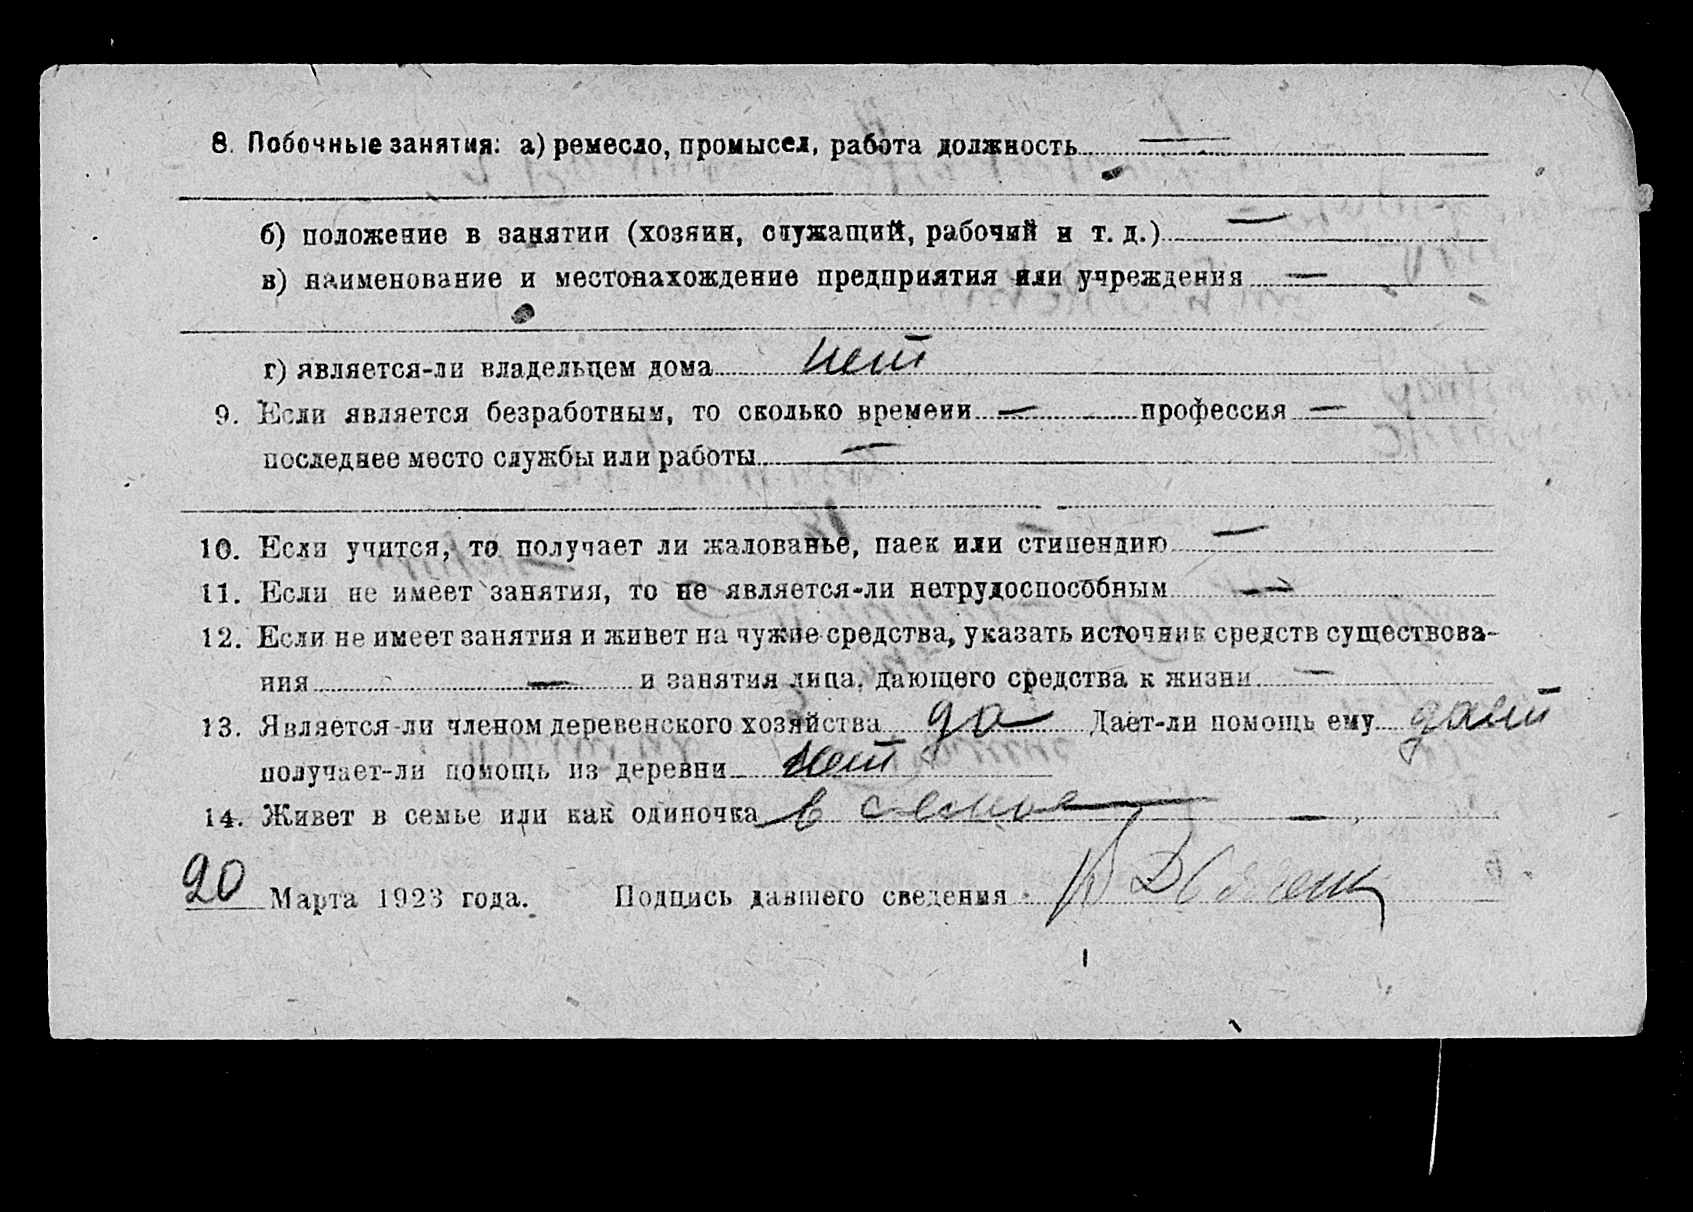 8. Побочные занятия: а) ремесло, промысел, работа должность —
б) положение в занятии (хозяин, служащий, рабочий и т. д.) —
в) наименование и местонахождение предприятия или учреждения —
г) является-ли владельцем дома нет
9. Если является безработным, то сколько времени — профессия —
последнее место службы или работы —
10. Если учится, то получает ли жалованье, паек или стипендию —
11. Если не имеет занятия, то не является-ли нетрудоспособным —
12. Если не имеет занятия и живет на чужие средства, указать источник средств существова-
ния — и занятия лица, дающего средства к жизни —
13. Является-ли членом деревенского хозяйства да Дает-ли помощь ему дает
получает-ли помощь из деревни нет
14. Живет в семье или как одиночка в семье —
20 Марта 1923 года. Подпись давшего сведения